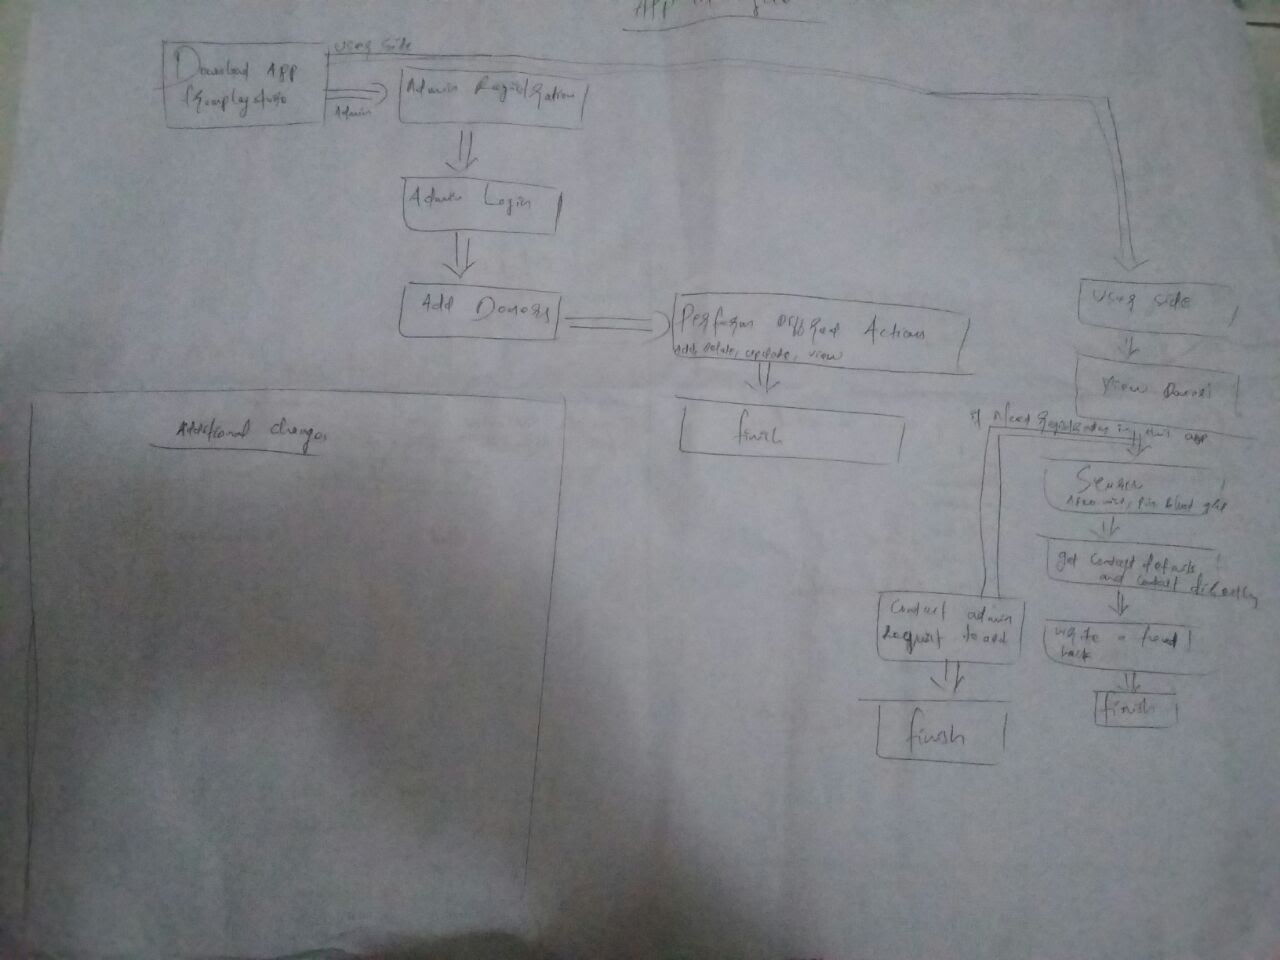 App
User side
Download App
from playstore
Admin
Admin Registration
Admin Login
Add Donors
Perform Actions
Add, Delete, update, view
finish
User side
View Donors
if Need Registration in this app
get contact details
and contact directly
write a feed
back
finish
Contact admin
Request to add
finish
Additional changes